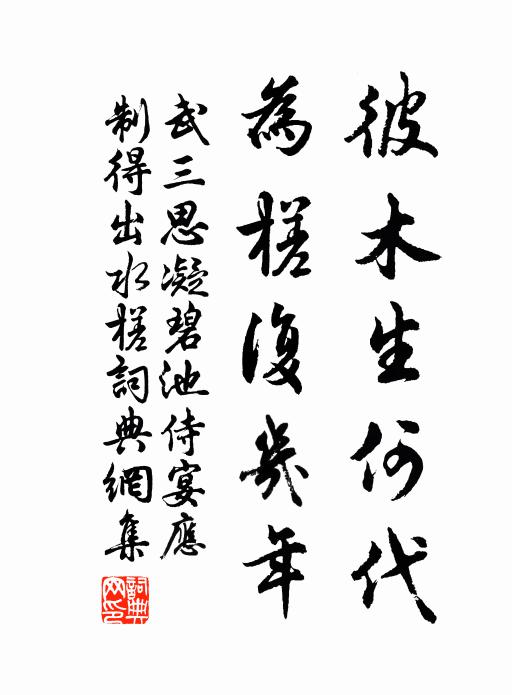 彼木生何代
為槎復幾年
武三思凝碧池侍宴應
制得出水槎詞典網集
詞典網印